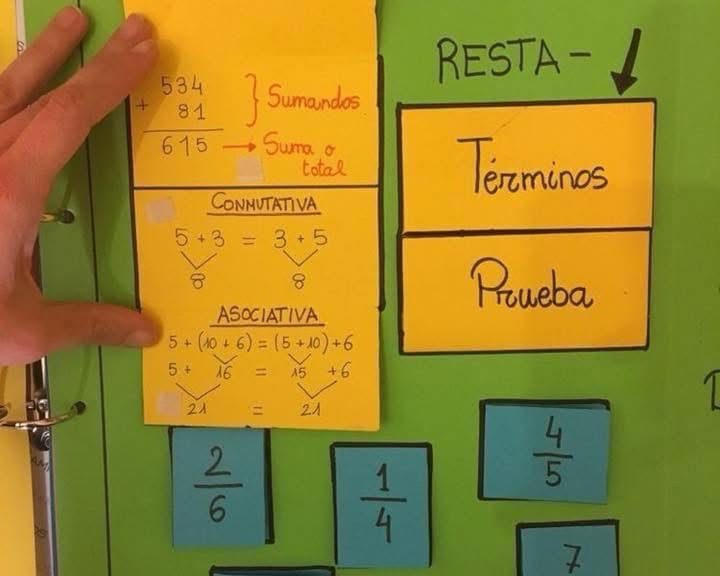 534
+ 81
615
} Sumandos
→ Suma o
total
CONMUTATIVA
5 + 3 = 3 + 5
8 8
ASOCIATIVA
5 + (10 + 6) = (5 + 10) + 6
5 + 16 = 15 + 6
21 = 21
RESTA -
Términos
Prueba
2
6
1
4
4
5
7